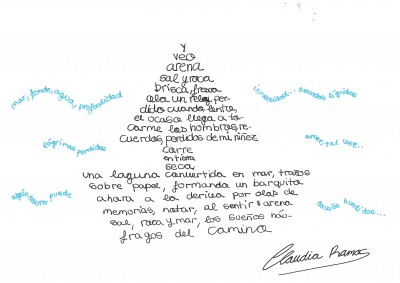 y
veo
arena
sal y roca
brisa, fresca
ola un reloj per-
dido cuando, lento,
el ocaso llega a to-
carme los hombros, re-
cuerdos, perdidos de mi niñez
corre
en tierra
seca
una laguna convertida en mar, trazos
sobre papel, formando un barquito
ahora a la deriva por olas de
memorias, notar, al sentir arena
sal, roca y mar, los sueños náu-
fragos del camino
mar, fondo, agua, profundidad
lágrimas perdidas
algún sabor puede
inmensidad... secretos líquidos
amor, tal vez...
Claudia Ramos